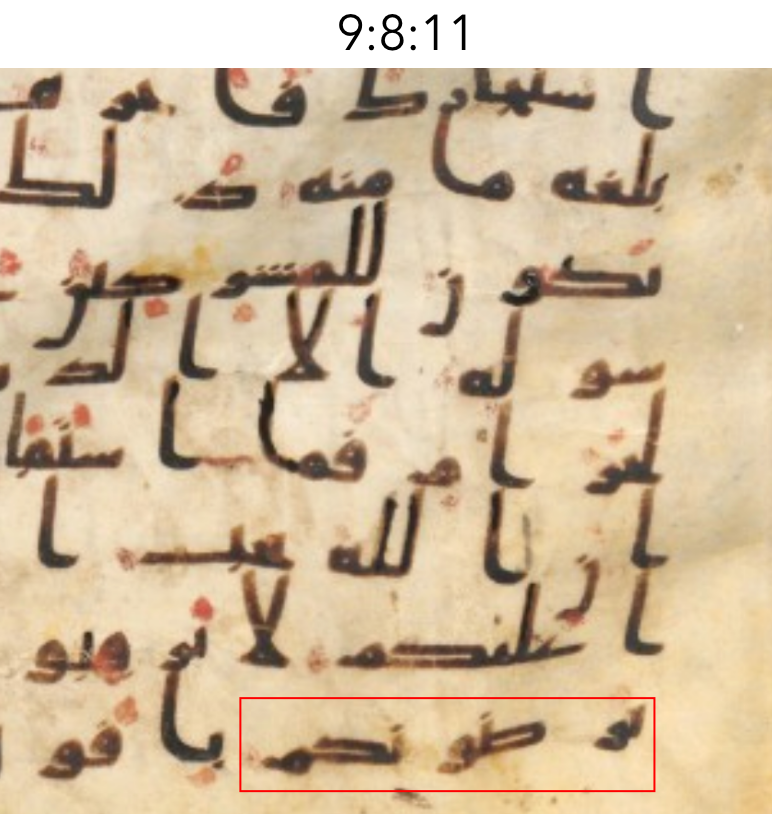 9:8:11
ا ستجارك فا جر ه
بلغه ما منه ذ لك
يكو ن للمشر كين
سو له ا لا ا لذ
لحر ا م فما ا ستقا
ا ن ا لله يحب ا
ا عليكم لا ير قبو
ير ضو نكم با فو